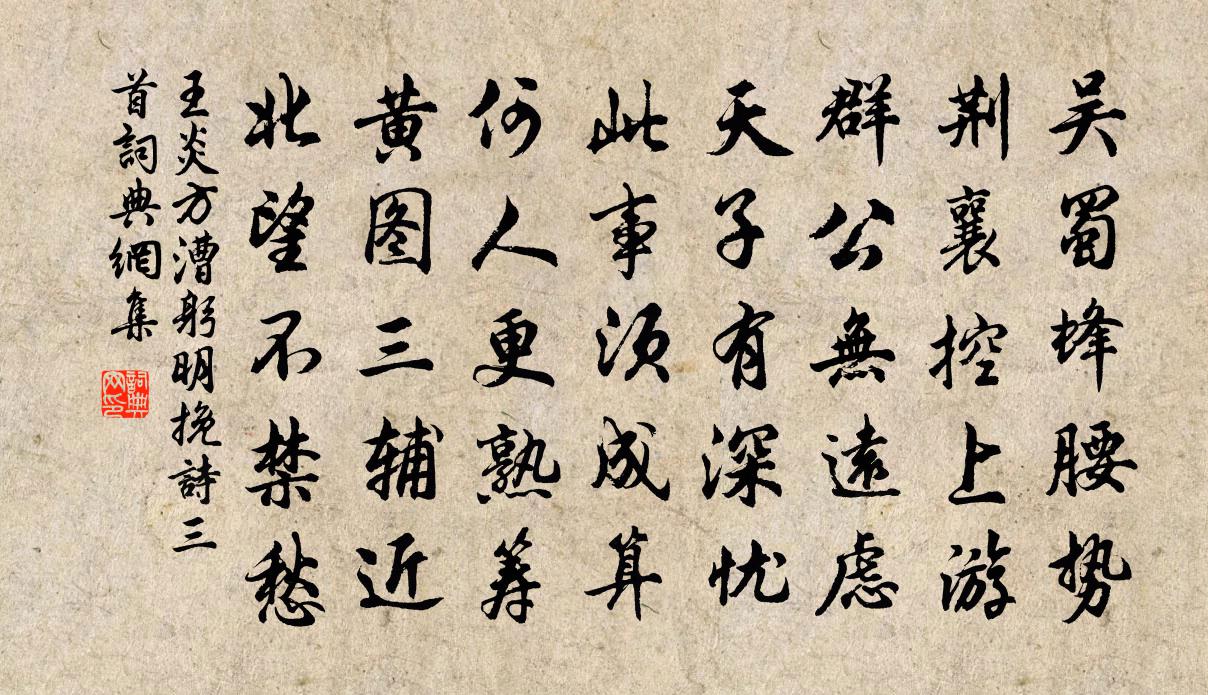 吴蜀蜂腰势
荆襄控上游
群公無遠虑
天子有深忧
此事须成算
何人更熟筹
黄图三辅近
北望不禁愁
王炎方漕躬明挽詩三
首詞典網集
詞典网印